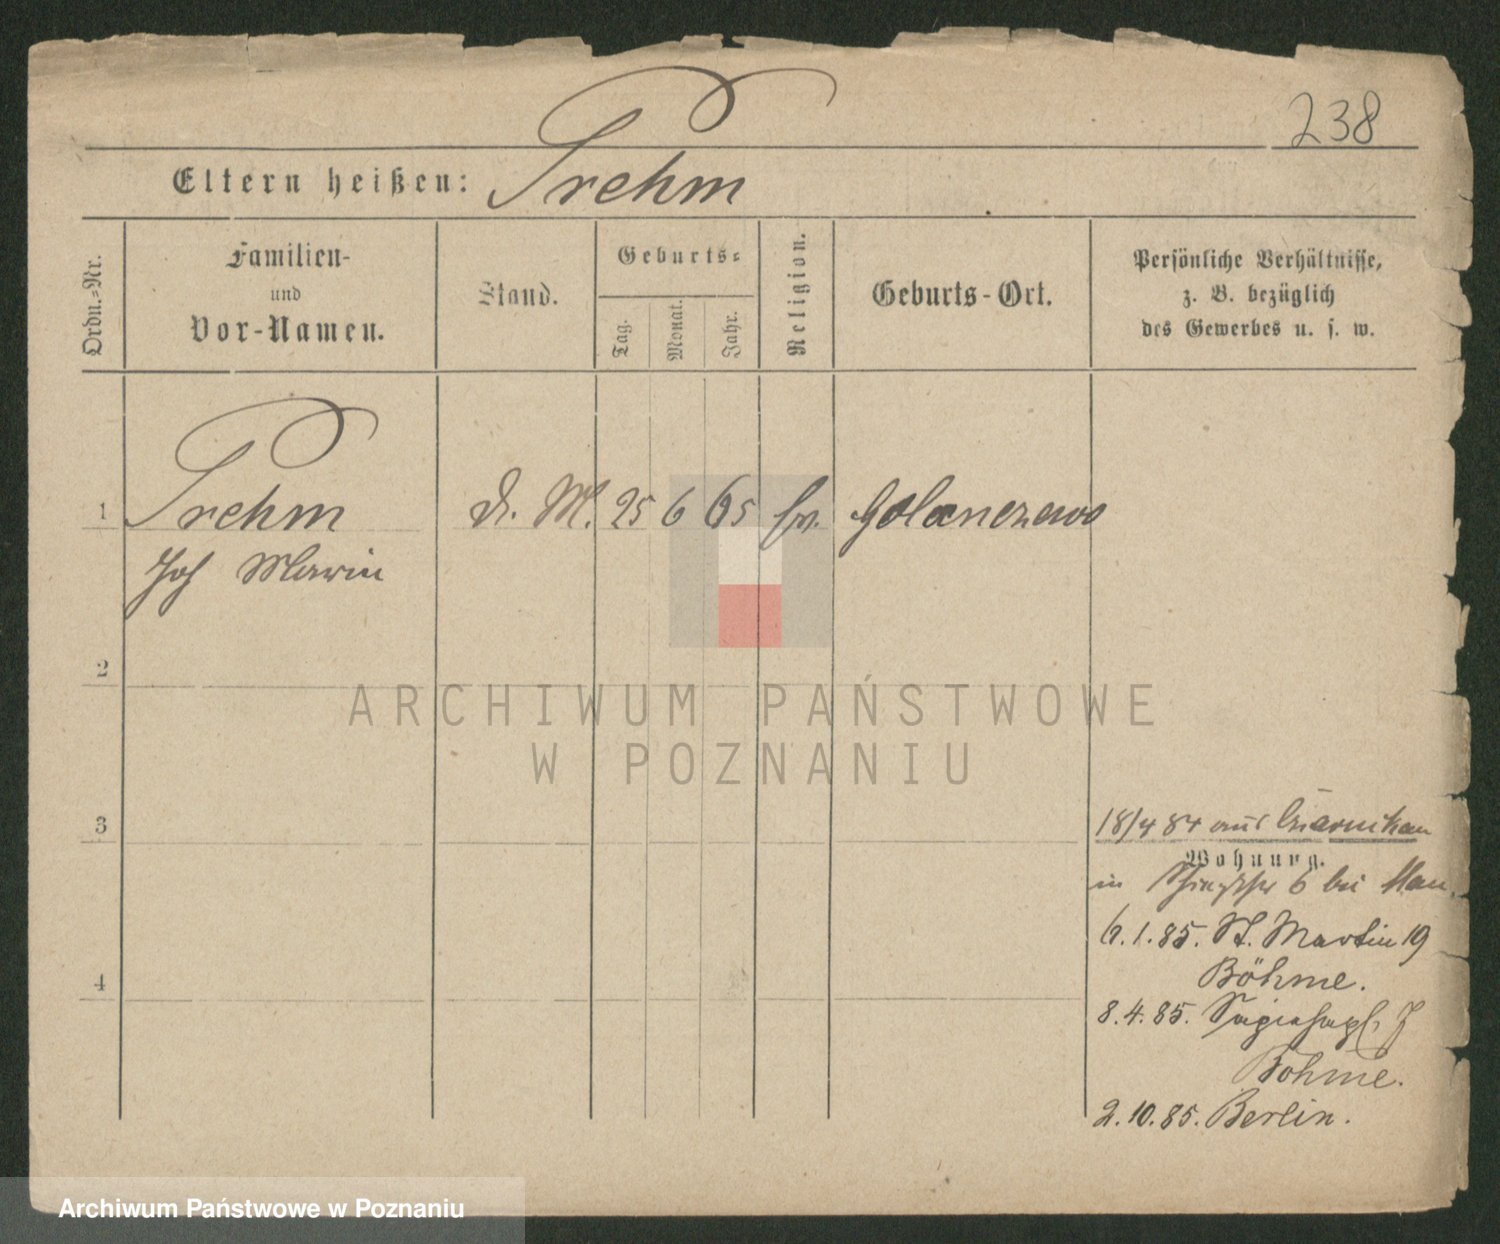 238
Eltern heißen: Prehm
Ordn.-Nr.
Familien-
und
Vor-Namen.
Stand.
Geburts-
Tag.
Monat.
Jahr.
Religion.
Geburts-Ort.
Persönliche Verhältnisse,
z. B. bezüglich
des Gewerbes u. s. w.
1 Prehm d. M. 25 6 65 ev. Golanczewo
Joh Marie
2
3
18/4 84 aus Czarnikau
Wohnung.
in 6 bei
6.1.85. St. Martin 19
Böhme.
4
8.4.85.
Böhme.
2.10.85. Berlin.
ARCHIWUM PAŃSTWOWE
W POZNANIU
Archiwum Państwowe w Poznaniu